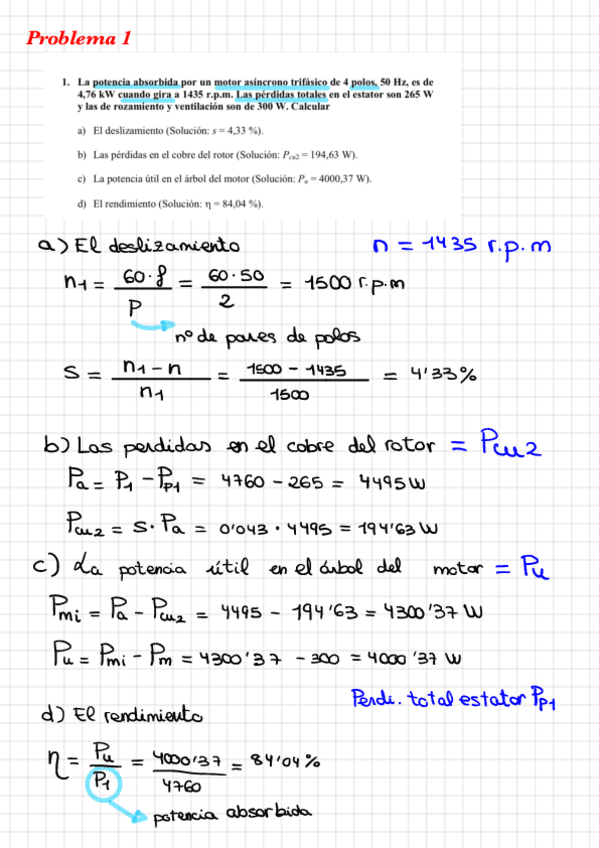 Problema 1
1. La potencia absorbida por un motor asíncrono trifásico de 4 polos, 50 Hz, es de
4,76 kW cuando gira a 1435 r.p.m. Las pérdidas totales en el estator son 265 W
y las de rozamiento y ventilación son de 300 W. Calcular
a) El deslizamiento (Solución: s = 4,33 %).
b) Las pérdidas en el cobre del rotor (Solución: Pcu2 = 194,63 W).
c) La potencia útil en el árbol del motor (Solución: Pu = 4000,37 W).
d) El rendimiento (Solución: η = 84,04 %).
a) El deslizamiento n = 1435 r.p.m
n1 = 60·f / P = 60·50 / 2 = 1500 r.p.m
nº de pares de polos
S = n1 - n / n1 = 1500 - 1435 / 1500 = 4'33%
b) Las perdidas en el cobre del rotor = Pcu2
Pa = P1 - Pp1 = 4760 - 265 = 4495 W
Pcu2 = S · Pa = 0'043 · 4495 = 194'63 W
c) La potencia útil en el árbol del motor = Pu
Pmi = Pa - Pcu2 = 4495 - 194'63 = 4300'37 W
Pu = Pmi - Pm = 4300'37 - 300 = 4000'37 W
Perdi. total estator Pp1
d) El rendimiento
η = Pu / P1 = 4000'37 / 4760 = 84'04%
potencia absorbida